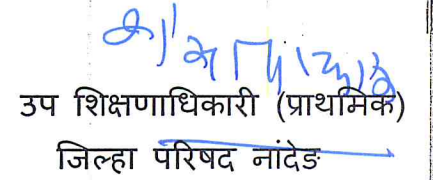 उप शिक्षणाधिकारी (प्राथमिक)
जिल्हा परिषद नांदेड